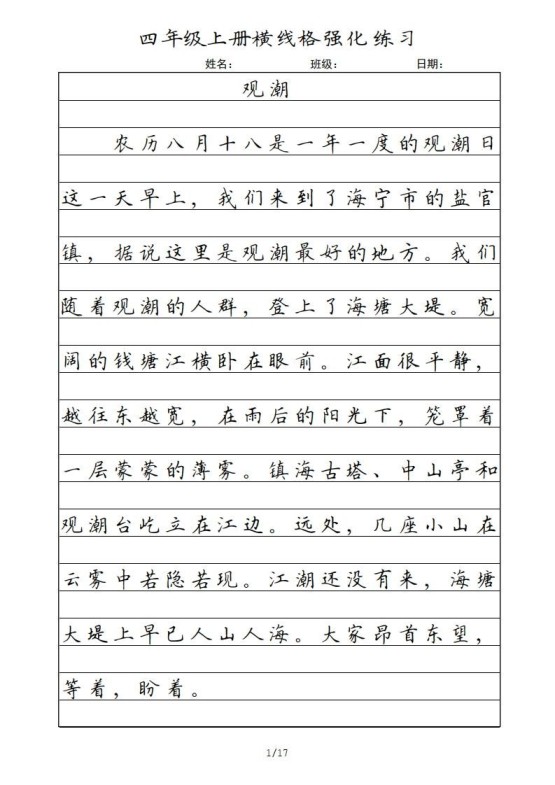 四年级上册横线格强化练习
姓名： 班级： 日期：
观潮
农历八月十八是一年一度的观潮日
这一天早上，我们来到了海宁市的盐官
镇，据说这里是观潮最好的地方。我们
随着观潮的人群，登上了海塘大堤。宽
阔的钱塘江横卧在眼前。江面很平静，
越往东越宽，在雨后的阳光下，笼罩着
一层蒙蒙的薄雾。镇海古塔、中山亭和
观潮台屹立在江边。远处，几座小山在
云雾中若隐若现。江潮还没有来，海塘
大堤上早已人山人海。大家昂首东望，
等着，盼着。
1/17